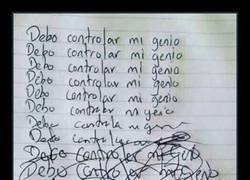 Debo controlar mi genio
Debo controlar mi genio
Debo controlar mi genio
Debo controlar mi genio
Debo controlar mi genio
Debo controlar mi genio
Debo
Debo
Debo controlar mi genio
Debo controlar